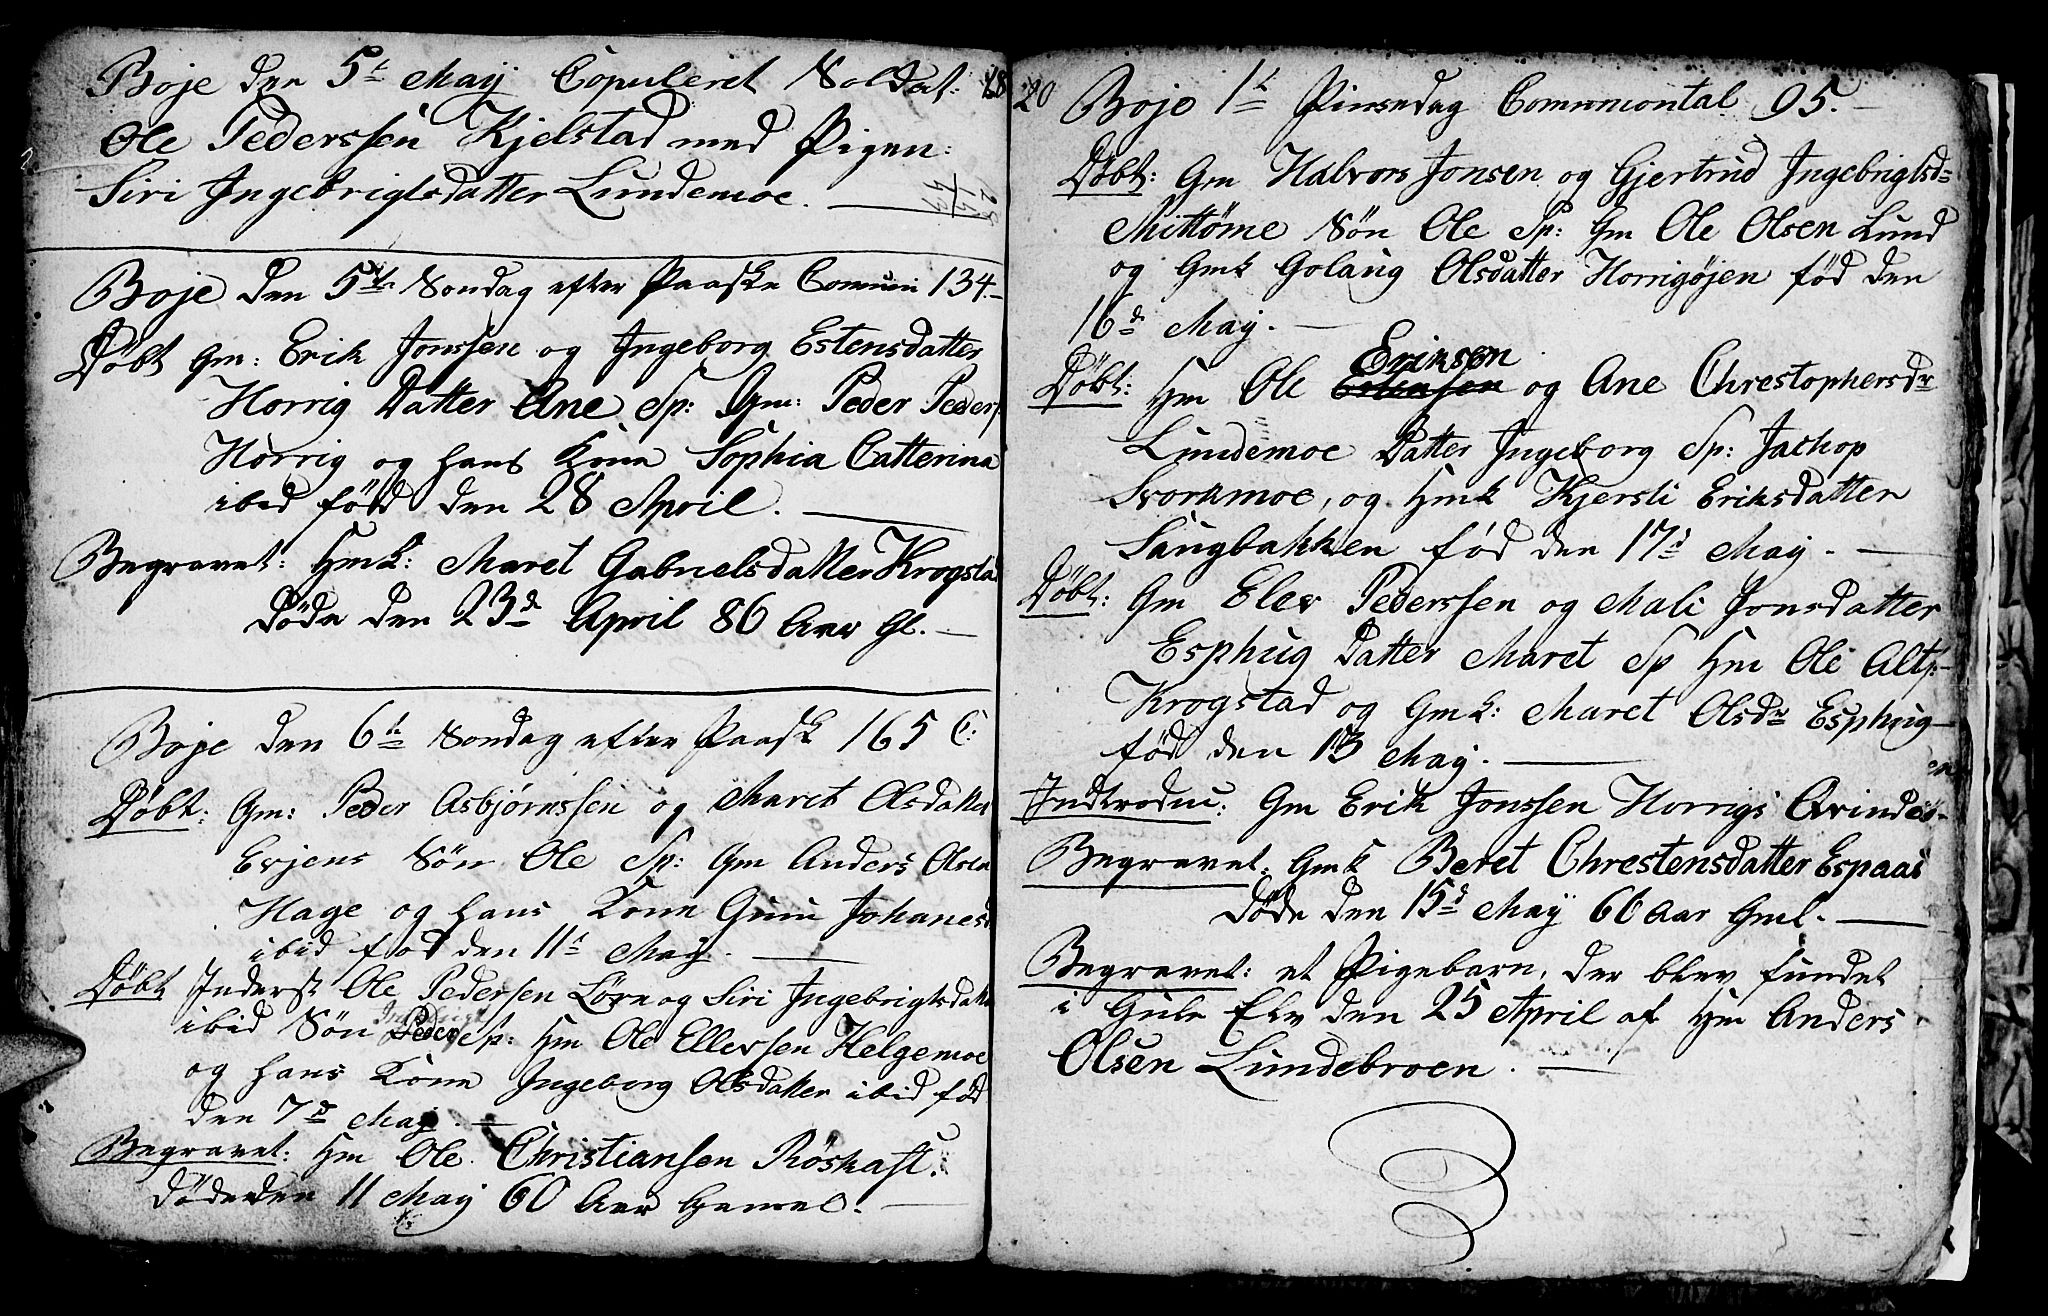 Boje den 5t May Copuleret Soldat:
Ole Pederssen Kjelstad med Pigen:
Siri Ingebrigtsdatter Lundemoe.
Boje den 5te Søndag efter Paaske Comuni 134
Døbt Gm: Erik Jonssen og Ingeborg Estensdatter
Horrig Datter Ane Sp: Gm: Peder Peders
Horrig og hans Kone Sophia Catterina
ibid fød den 28 April.
Begravet: Hmk: Maret Gabrielsdatter Krogstad
Døde den 23d April 86 Aar Gl.
Boje den 6te Søndag efter Paask 165 C:
Døbt: Gm: Peder Asbjørnssen og Maret Olsdatter
Evjens Søn Ole Sp: Gm Anders Olsen
Hage og hans Kone Guru Johanesd
ibid fød den 11t May.
Døbt Inderst Ole Pedersen Løre og Siri Ingebrigtsdatter
ibid Søn Peder Sp: Hm Ole Ellevsen Helgemoe
og hans Kone Ingeborg Olsdatter ibid fød
den 7de May.
Begravet: Hm Ole Christiansen Röskaft.
Døde den 11 May 60 Aar Gamel.
20 Boje 1t Pinsedag Communicantal 95.
Døbt: Gm Halvor Jonsen og Gjertrud Ingebrigtsd=
Mittøme Søn Ole Sp: Gm Ole Olsen Lund
og Gmk Golaug Olsdatter Horrigøjen fød den
16d May.
Eriksen
Døbt: Hm Ole og Ane Chrestophersdr
Lundemoe Datter Ingeborg Sp: Jachop
Svorkmoe, og Hmk Kjersti Eriksdatter
Saugbakken fød den 17d May.
Døbt: Gm Elev Pederssen og Mali Jonsdatter
Esphug Datter Maret Sp Hm Ole
Krogstad og Gmk: Maret Olsdr Esphug
en
fød den 13 May.
Indtroduc: Gm Erik Jonssen Horrigs Qvinde
Begravet: Gmk Beret Chrestensdatter Espaas
Døde den 15d May 66 Aar Gml.
Begravet: et Pigebarn, der blev fundet
i Gule Elv den 25 April af Hm Anders
Olsen Lundebroen.